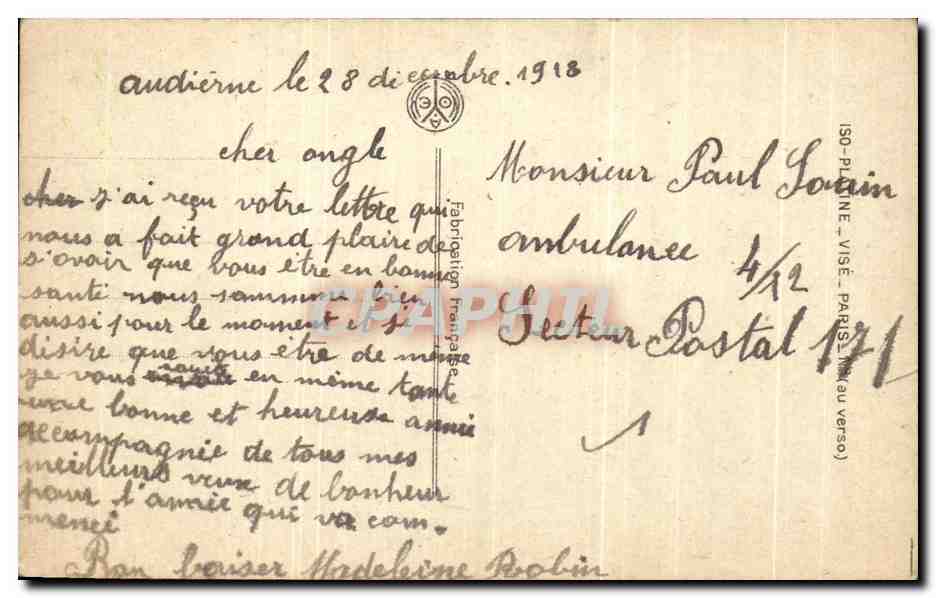 audierne le 28 decembre. 1918
cher ongle
cher j'ai reçu votre lettre qui
nous a fait grand plaire de
s'avoir que vous être en bonne
santé nous sammme bien
aussi pour le moment et je
désire que vous être de même
je vous souaite en même tante
une bonne et heureuse année
accompagnée de tous mes
meilleurs veux de bonheur
pour l'année qui va com-
mencé
Bon baiser Madeleine Robin
Monsieur Paul
ambulance 4/12
Secteur Postal 171
1
Fabrication Française
ISO-PLATINE _ VISÉ _ PARIS _ Nº (au verso)
CPAPHIL